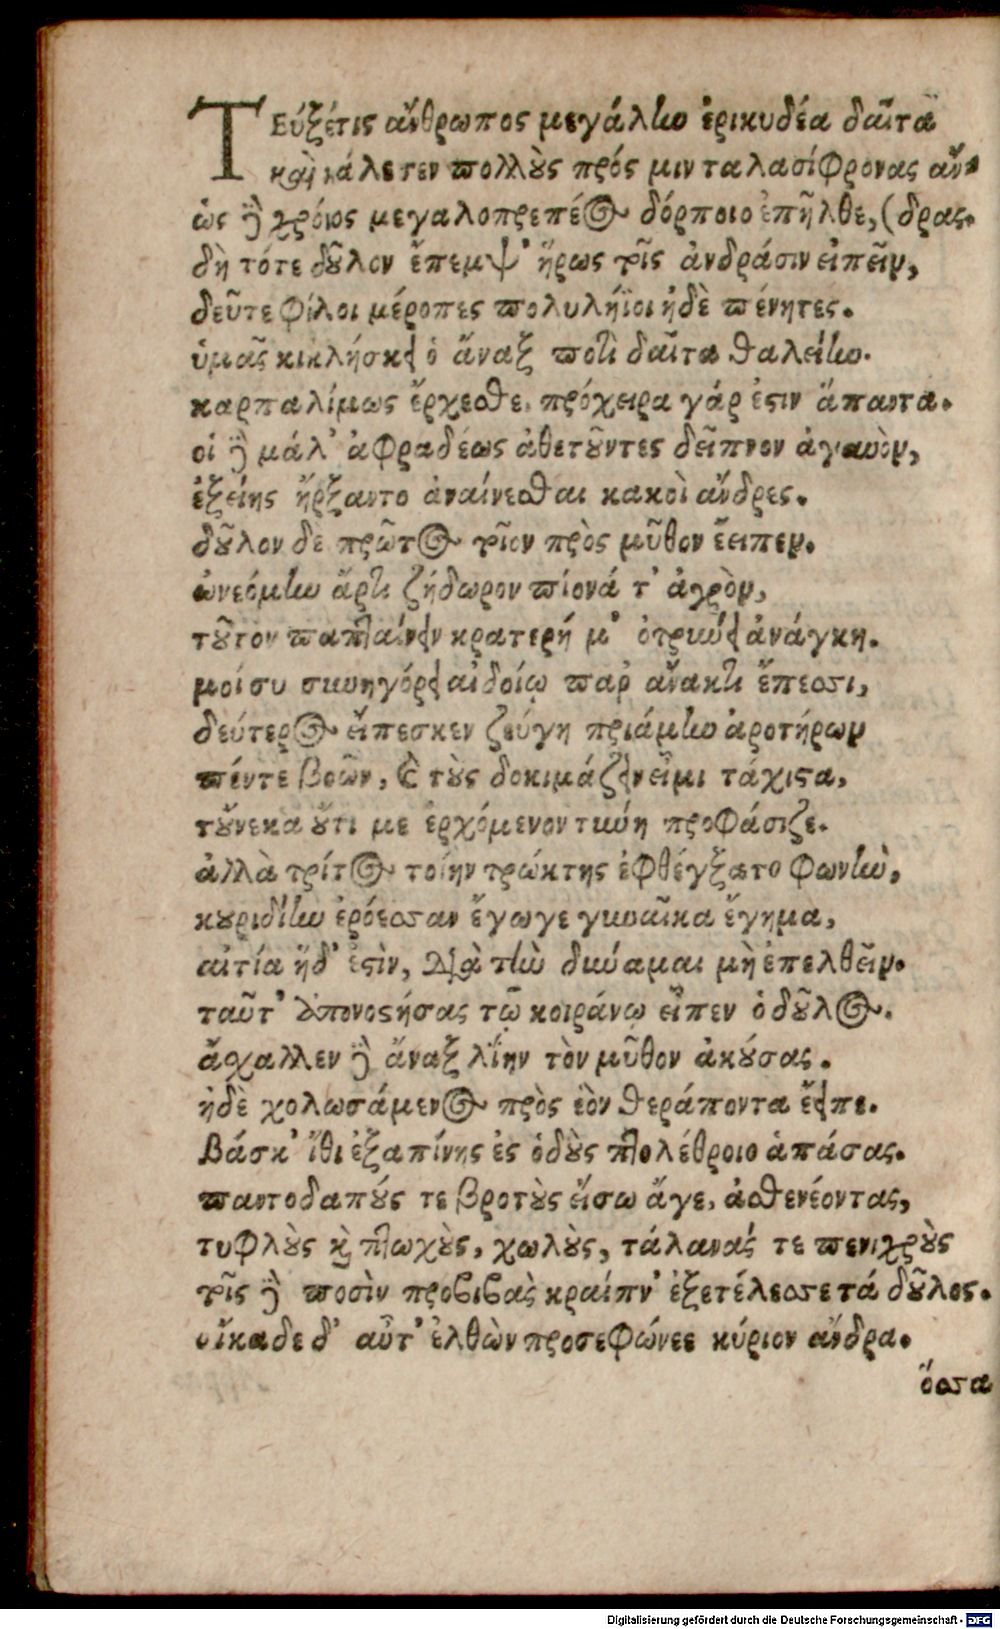 ΤΕύξέτις ἄνθρωπος μεγάλην ἐρικυδέα δαῖτα
καὶ κάλεσεν πολλοὺς πρός μιν ταλασίφρονας ἄν-
ὡς δὲ χρόνος μεγαλοπρεπέος δόρποιο ἐπῆλθε, (δρας.
δὴ τότε δοῦλον ἔπεμψ' ἥρως τοῖς ἀνδράσιν εἰπεῖν,
δεῦτε φίλοι μέροπες πολυλήϊοι ἠδὲ πένητες.
ὑμᾶς κικλήσκει ὁ ἄναξ ποτὶ δαῖτα θαλείην.
καρπαλίμως ἔρχεσθε, πρόχειρα γάρ ἐστιν ἅπαντα.
οἱ δὲ μάλ' ἀφραδέως ἀθετοῦντες δεῖπνον ἀγαυὸν,
ἑξείης ἤρξαντο ἀναίνεσθαι κακοὶ ἄνδρες.
δοῦλον δὲ πρῶτος τοῖον πρὸς μῦθον ἔειπεν.
ὠνεόμην ἄρτι ζήδωρον πίονά τ' ἀγρὸν,
τοῦτον παπταίνειν κρατερή μ' ὀτρύνει ἀνάγκη.
μοί συ συνηγόρει αἰδοίῳ παρ ἄνακτι ἔπεσσι,
δεύτερος εἴπεσκεν ζεύγη πριάμην ἀροτήρων
πέντε βοῶν, καὶ τοὺς δοκιμάζειν εἶμι τάχιστα,
τούνεκα οὔτι με ἐρχόμενον τύνη προφάσιζε.
ἀλλὰ τρίτος τοίην τρώκτης ἐφθέγξατο φωνὴν,
κουριδίην ἐρόεσσαν ἔγωγε γυναῖκα ἔγημα,
αἰτία ἥδ' ἐστὶν, διὰ τὴν δύναμαι μὴ ἐπελθεῖν.
ταῦτ' ἀπονοστήσας τῷ κοιράνῳ εἶπεν ὁ δοῦλος.
ἄσχαλλεν δὲ ἄναξ λΐην τὸν μῦθον ἀκούσας.
ἠδὲ χολωσάμενος πρὸς ἑὸν θεράποντα ἔειπε.
Βάσκ' ἴθι ἐξαπίνης ἐς ὁδοὺς πτολέθροιο ἁπάσας.
παντοδαπούς τε βροτοὺς εἴσω ἄγε, ἀσθενέοντας,
τυφλοὺς καὶ πτωχοὺς, χωλοὺς, τάλανάς τε πενιχροὺς
τοῖς δὲ ποσὶν προβιβὰς κραίπν' ἐξετέλεσσε τά δοῦλος.
οἴκαδε δ' αὖτ' ἐλθὼν προσεφώνεε κύριον ἄνδρα.
ὅσσα
Digitalisierung gefördert durch die Deutsche Forschungsgemeinschaft - DFG